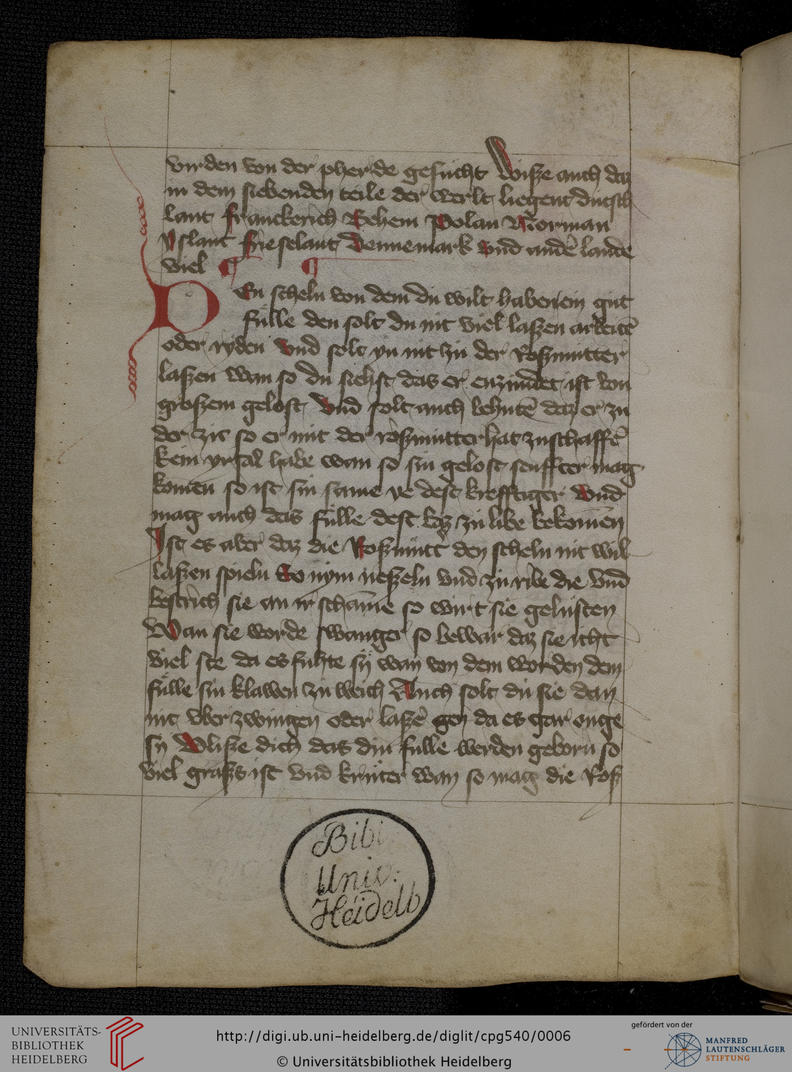 wirden von der pherde gesucht Wisze auch daz
in dem siebenden teile der werlt liegent dutsch
lant Franckerich Behem Polan Norman
yslant frieselant Dennemark vnd ander̄ lande
viel
DEn scheln von dem du wilt haben ein gut
fulle den solt du nit viel laszen arbeitē
oder ryden Vnd solt yn nit zu der roszmutter
laszen wan so du siehst das er enzundet ist von
groszem gelost Vnd solt auch behutē daz er zu
der zit so er mit der roszmutter hat zuschaffē
kein vrsal habe wan so sin gelost senffter mag
komen so ist sin same ye dest krefftiger Vnd
mag auch das fulle dest baz zu libe bekomen
Ist es aber daz die Roszmutt̄ den scheln nit wil
laszen spieln So nym neszeln vnd zu ribe die vnd
bestrich sie an ir schame so wirt sie gelusten
Wan sie worde swanger so bewar daz sie icht
viel ste da es fuhte sy wan von dem worden dem
fulle sin klawen zu weich Auch solt du sie dan
nit vber zwingen oder laszē gen da es gar enge
sy Vlisze dich das din fulle werden geborn so
viel grasz ist vnd kruter wan so mag die Rosz
Bibl
Univ.
Heidelb
UNIVERSITÄTS-
BIBLIOTHEK
HEIDELBERG
http://digi.ub.uni-heidelberg.de/diglit/cpg540/0006
© Universitätsbibliothek Heidelberg
gefördert von der
MANFRED
LAUTENSCHLÄGER
STIFTUNG